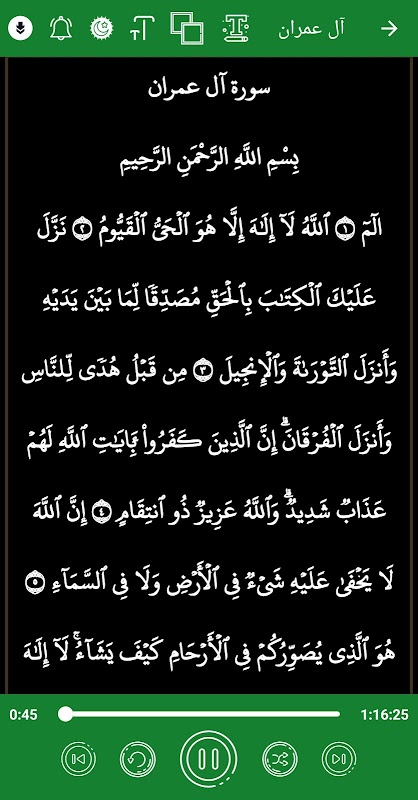 آل عمران
سورة آل عمران
بِسْمِ اللَّهِ الرَّحْمَنِ الرَّحِيمِ
الٓمٓ ١ ٱللَّهُ لَآ إِلَٰهَ إِلَّا هُوَ ٱلْحَىُّ ٱلْقَيُّومُ ٢ نَزَّلَ
عَلَيْكَ ٱلْكِتَٰبَ بِٱلْحَقِّ مُصَدِّقًا لِّمَا بَيْنَ يَدَيْهِ
وَأَنزَلَ ٱلتَّوْرَىٰةَ وَٱلْإِنجِيلَ ٣ مِن قَبْلُ هُدًى لِّلنَّاسِ
وَأَنزَلَ ٱلْفُرْقَانَۗ إِنَّ ٱلَّذِينَ كَفَرُواْ بِـَٔايَٰتِ ٱللَّهِ لَهُمْ
عَذَابٌ شَدِيدٌۗ وَٱللَّهُ عَزِيزٌ ذُو ٱنتِقَامٍ ٤ إِنَّ ٱللَّهَ
لَا يَخْفَىٰ عَلَيْهِ شَىْءٌ فِى ٱلْأَرْضِ وَلَا فِى ٱلسَّمَآءِ ٥
هُوَ ٱلَّذِى يُصَوِّرُكُمْ فِى ٱلْأَرْحَامِ كَيْفَ يَشَآءُۚ لَآ إِلَٰهَ
0:45 1:16:25